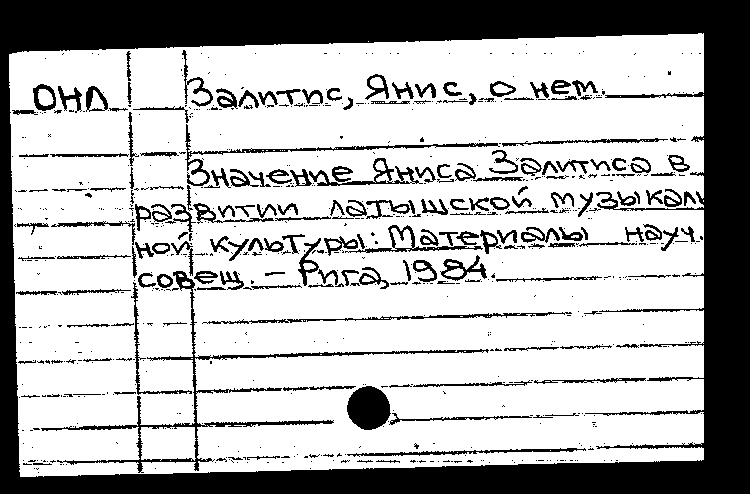 ОНЛ Залитис, Янис, о нем.
Значение Яниса Залитиса в
развитии латышской музыкаль
ной культуры: Материалы науч.
совещ. – Рига, 1984.